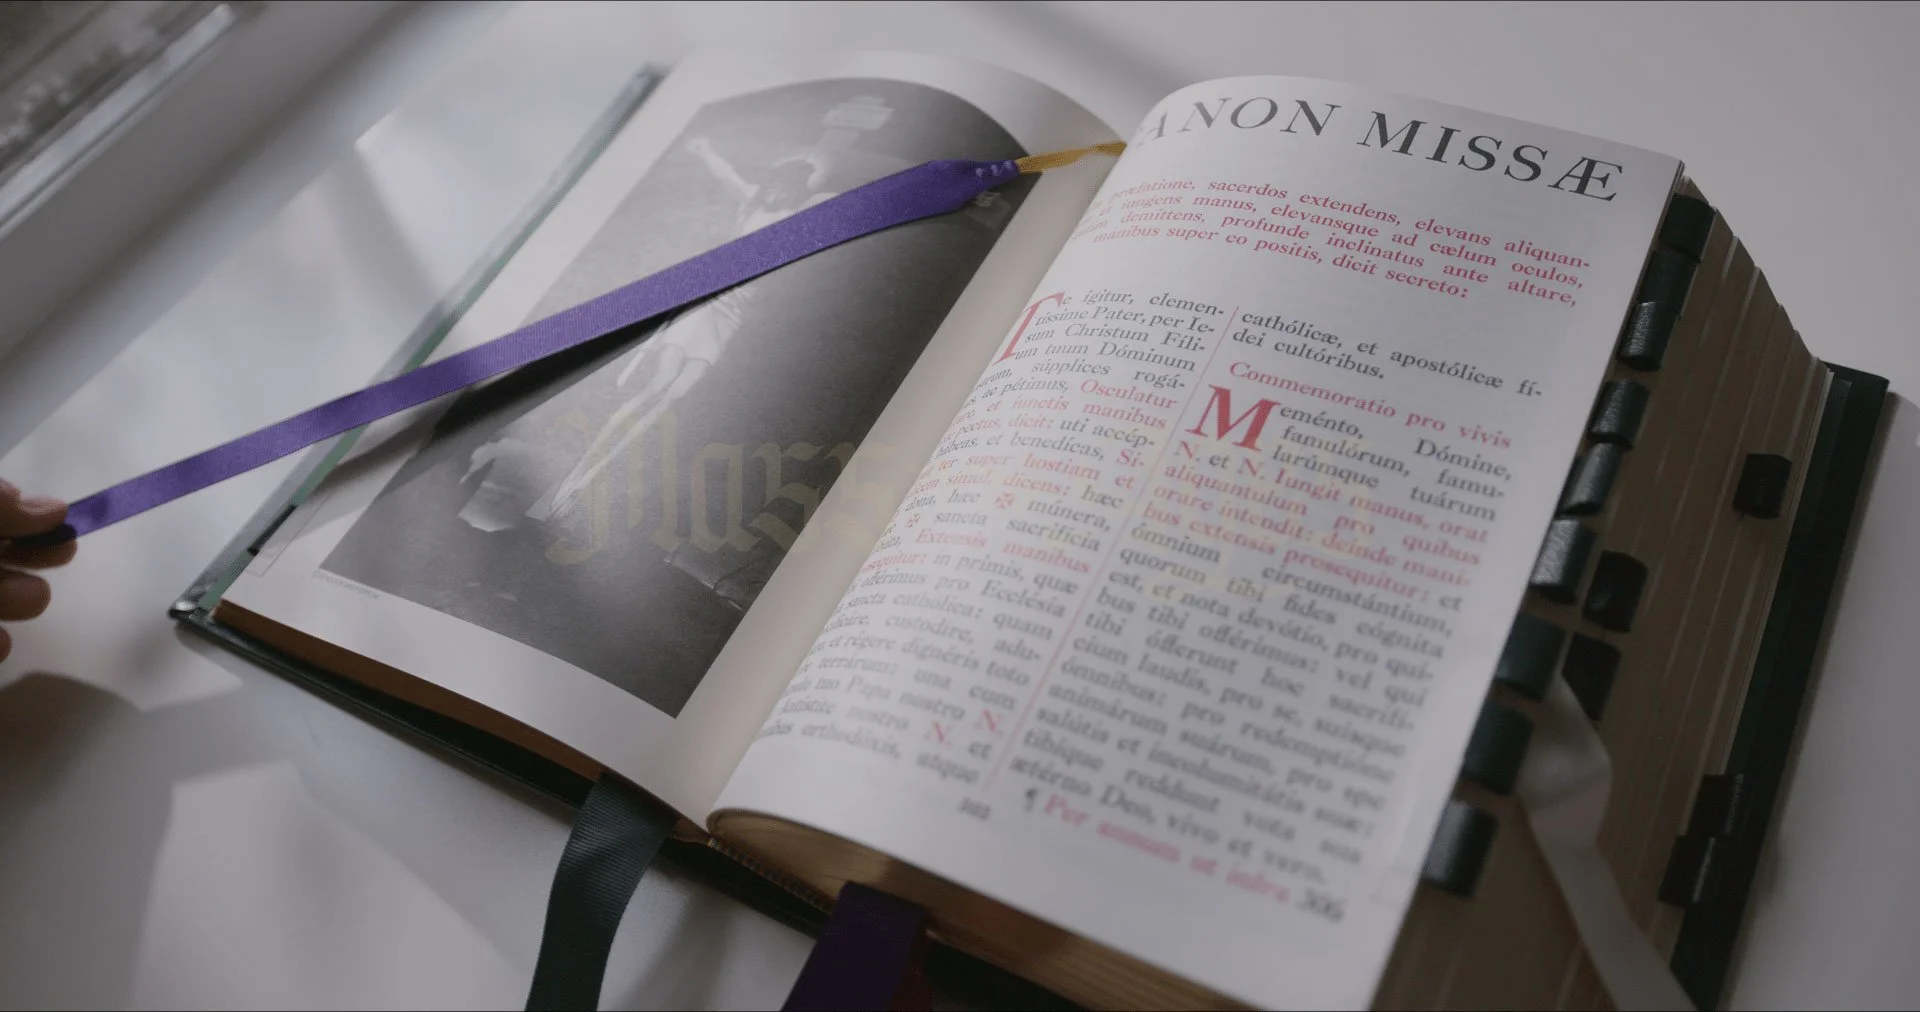 ANON MISSÆ
præfatione, sacerdos extendens, elevans aliquan-
et iungens manus, elevansque ad cælum oculos,
demittens, profunde inclinatus ante altare,
manibus super eo positis, dicit secreto:
Te ígitur, clemen-
tíssime Pater, per Ie-
sum Christum Fíli-
um tuum Dóminum
súpplices rogá-
ac pétimus, Osculatur
et iunctis manibus
pectus, dicit: uti accép-
hábeas, et benedícas, Si-
ter super hostiam et
simul, dicens: hæc
dona, hæc ✠ múnera,
✠ sancta sacrifícia
Extensis manibus
in primis, quæ
offérimus pro Ecclésia
sancta cathólica: quam
custodíre, adu-
et régere dignéris toto
terrárum: una cum
Papa nostro N.
Antístite nostro N. et
orthodóxis, atque
cathólicæ, et apostólicæ fí-
dei cultóribus.
Commemoratio pro vivis
Meménto, Dómine,
famulórum, famu-
larúmque tuárum
N. et N. Iungit manus, orat
aliquantulum pro quibus
orare intendit: deinde mani-
bus extensis prosequitur: et
ómnium circumstántium,
quorum tibi fides cógnita
est, et nota devótio, pro qui-
bus tibi offérimus: vel qui
tibi ófferunt hoc sacrifí-
cium laudis, pro se, suísque
ómnibus: pro redemptióne
animárum suárum, pro spe
salútis et incolumitátis suæ:
tibíque reddunt vota sua
ætérno Deo, vivo et vero.
¶ Per annum ut infra 306
Mass